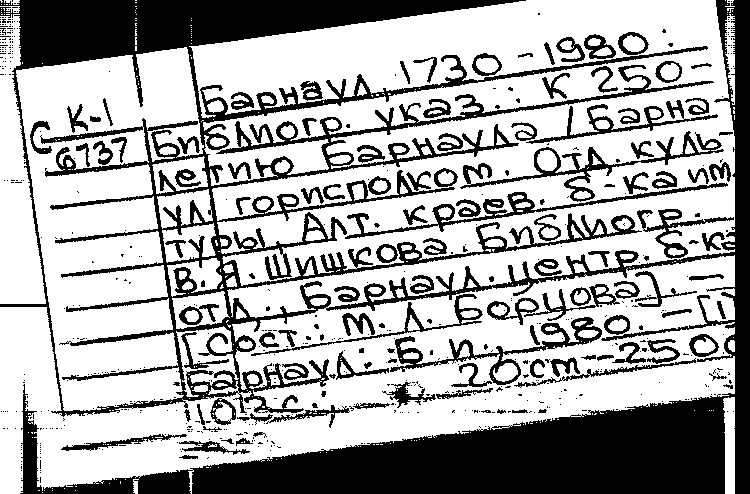 Барнаул, 1730-1980:
С К-1
6737
Библиогр. указ.: К 250-
летию Барнаула / Барна-
ул. горисполком. Отд. куль-
туры, Алт. краев. б-ка им.
В. Я. Шишкова. Библиогр.
отд., Барнаул. центр. б-ка
[Сост.: М. Л. Борцова]. –
Барнаул: Б. и., 1980. –
103 с.; 20 см. – 2500